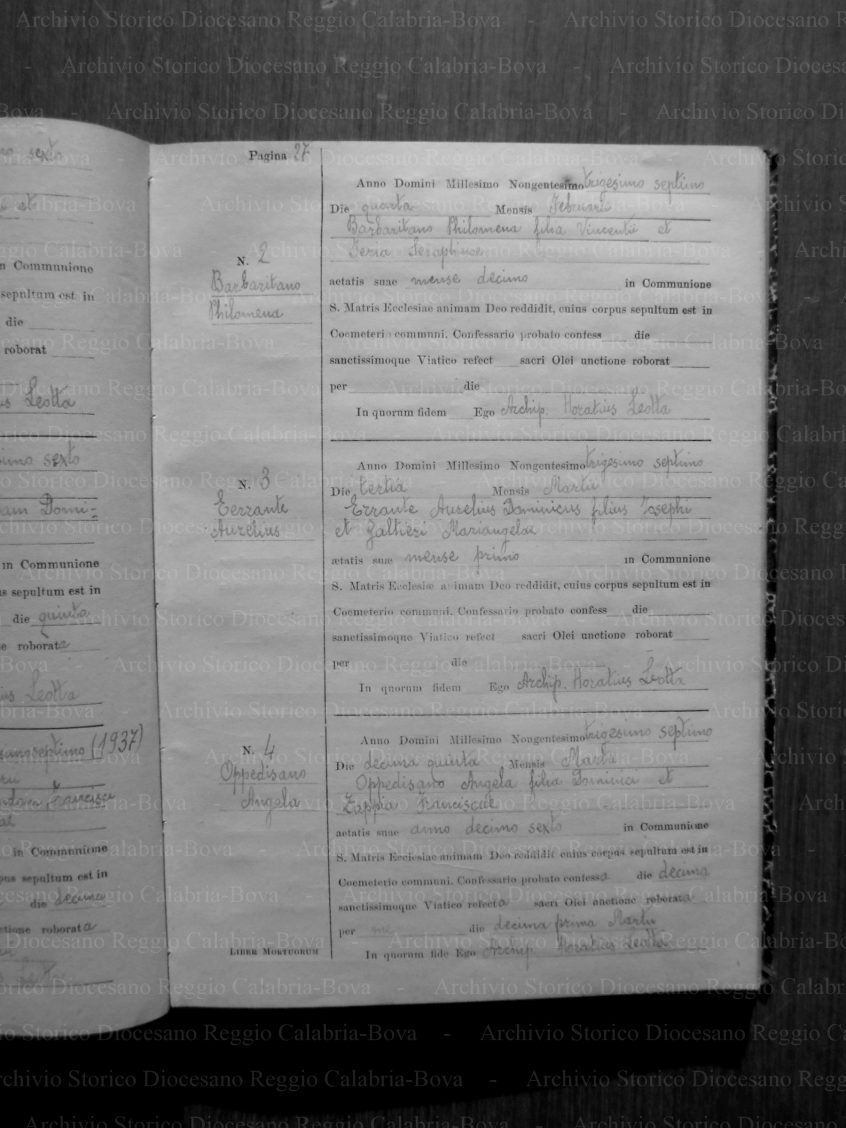 Pagina 27
Anno Domini Millesimo Nongentesimo trigesimo septimo
Die quarta Mensis Februarii
N. 2
Barbaritano
Philomena
Barbaritano Philomena filia Vincentii et
Seraphinae
aetatis suae mense decimo in Communione
S. Matris Ecclesiae animam Deo reddidit, cuius corpus sepultum est in
Coemeterio communi. Confessario probato confess die
sanctissimoque Viatico refect sacri Olei unctione roborat
per die
In quorum fidem Ego Archip. Horatius Leotta
Anno Domini Millesimo Nongentesimo trigesimo septimo
Die tertia Mensis Martii
N. 3
Eerrante
Aurelius
Errante Aurelius Dominicus filius Josephi
et Galtieri Mariangelae
ætatis suæ mense primo in Communione
S. Matris Ecclesiae animam Deo reddidit, cuius corpus sepultum est in
Coemeterio communi. Confessario probato confess die
sanctissimoque Viatico refect sacri Olei unctione roborat
per die
In quorum fidem Ego Archip. Horatius Leotta
Anno Domini Millesimo Nongentesimo trigesimo septimo
Die decima quinta Mensis Martii
N. 4
Oppedisano
Angela
Oppedisano Angela filia Dominici et
Zappia Franciscae
aetatis suae anno decimo sexto in Communione
S. Matris Ecclesiae animam Deo reddidit cuius corpus sepultum est in
Coemeterio communi. Confessario probato confessa die decima
sanctissimoque Viatico refecta sacri Olei unctione roborata
per me die decima prima Martii
In quorum fide Ego Archip. Horatius Leotta
LIBER MORTUORUM
sexto
et
in Communione
sepultum est in
die
roborat
Leotta
sexto
in Communione
sepultum est in
die quinta
roborata
Leotta
septimo (1937)
in Communione
sepultum est in
die decima
roborata
Archivio Storico Diocesano Reggio Calabria-Bova